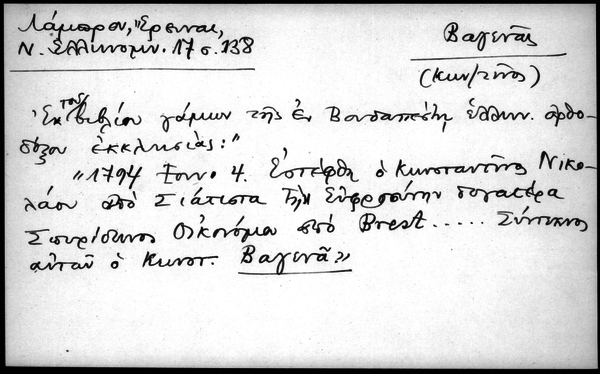 Λάμπρου, "Έρευναι,
Ν. Ἑλληνομν. 17 σ. 138
Βαγενᾶς
(Κων/τῖνος)
Ἐκ τοῦ βιβλίου γάμων τῆς ἐν Βουδαπέστῃ ἑλλην. ὀρθο-
δόξου ἐκκλησίας:"
"1794 Ἰουν. 4. Ἐστέφθη ὁ Κωνσταντῖνος Νικο-
λάου ἀπὸ Σιάτιστα τὴν Εὐφροσύνην θυγατέρα
Σπυρίδωνος Οἰκονόμου ἀπὸ Brest ..... Σύντεκνος
αὐτοῦ ὁ Κωνστ. Βαγενᾶ»